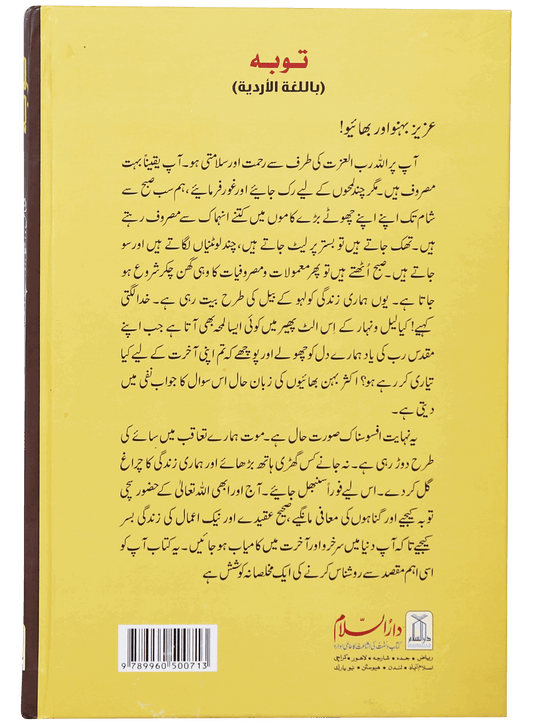 توبہ
(باللغة الأردية)
عزیز بہنو اور بھائیو!
آپ پر اللہ رب العزت کی طرف سے رحمت اور سلامتی ہو۔ آپ یقیناً بہت
مصروف ہیں۔ مگر چند لمحوں کے لیے رک جائیے اور غور فرمائیے، ہم سب صبح سے
شام تک اپنے اپنے چھوٹے بڑے کاموں میں کتنے انہماک سے مصروف رہتے
ہیں۔ تھک جاتے ہیں تو بستر پر لیٹ جاتے ہیں، چند لوٹنیاں لگاتے ہیں اور سو
جاتے ہیں۔ صبح اُٹھتے ہیں تو پھر معمولات و مصروفیات کا وہی گھن چکر شروع ہو
جاتا ہے۔ یوں ہماری زندگی کولہو کے بیل کی طرح بیت رہی ہے۔ خدا لگتی
کہیے! کیا لیل و نہار کے اس الٹ پھیر میں کوئی ایسا لمحہ بھی آتا ہے جب اپنے
مقدس رب کی یاد ہمارے دل کو چھولے اور پوچھے کہ تم اپنی آخرت کے لیے کیا
تیاری کر رہے ہو؟ اکثر بہن بھائیوں کی زبان حال اس سوال کا جواب نفی میں
دیتی ہے۔
یہ نہایت افسوسناک صورت حال ہے۔ موت ہمارے تعاقب میں سائے کی
طرح دوڑ رہی ہے۔ نہ جانے کس گھڑی ہاتھ بڑھائے اور ہماری زندگی کا چراغ
گل کر دے۔ اس لیے فوراً سنبھل جائیے۔ آج اور ابھی اللہ تعالیٰ کے حضور سچی
توبہ کیجیے اور گناہوں کی معافی مانگیے، صحیح عقیدے اور نیک اعمال کی زندگی بسر
کیجیے تاکہ آپ دنیا میں سرخرو اور آخرت میں کامیاب ہو جائیں۔ یہ کتاب آپ کو
اسی اہم مقصد سے روشناس کرنے کی ایک مخلصانہ کوشش ہے
دارالسلام
دارالسلام
کتاب و سنت کی اشاعت کا عالمی ادارہ
ریاض • جدہ • شارجہ • لاہور • کراچی
اسلام آباد • لندن • ہیوسٹن • نیو یارک
9 789960 500713